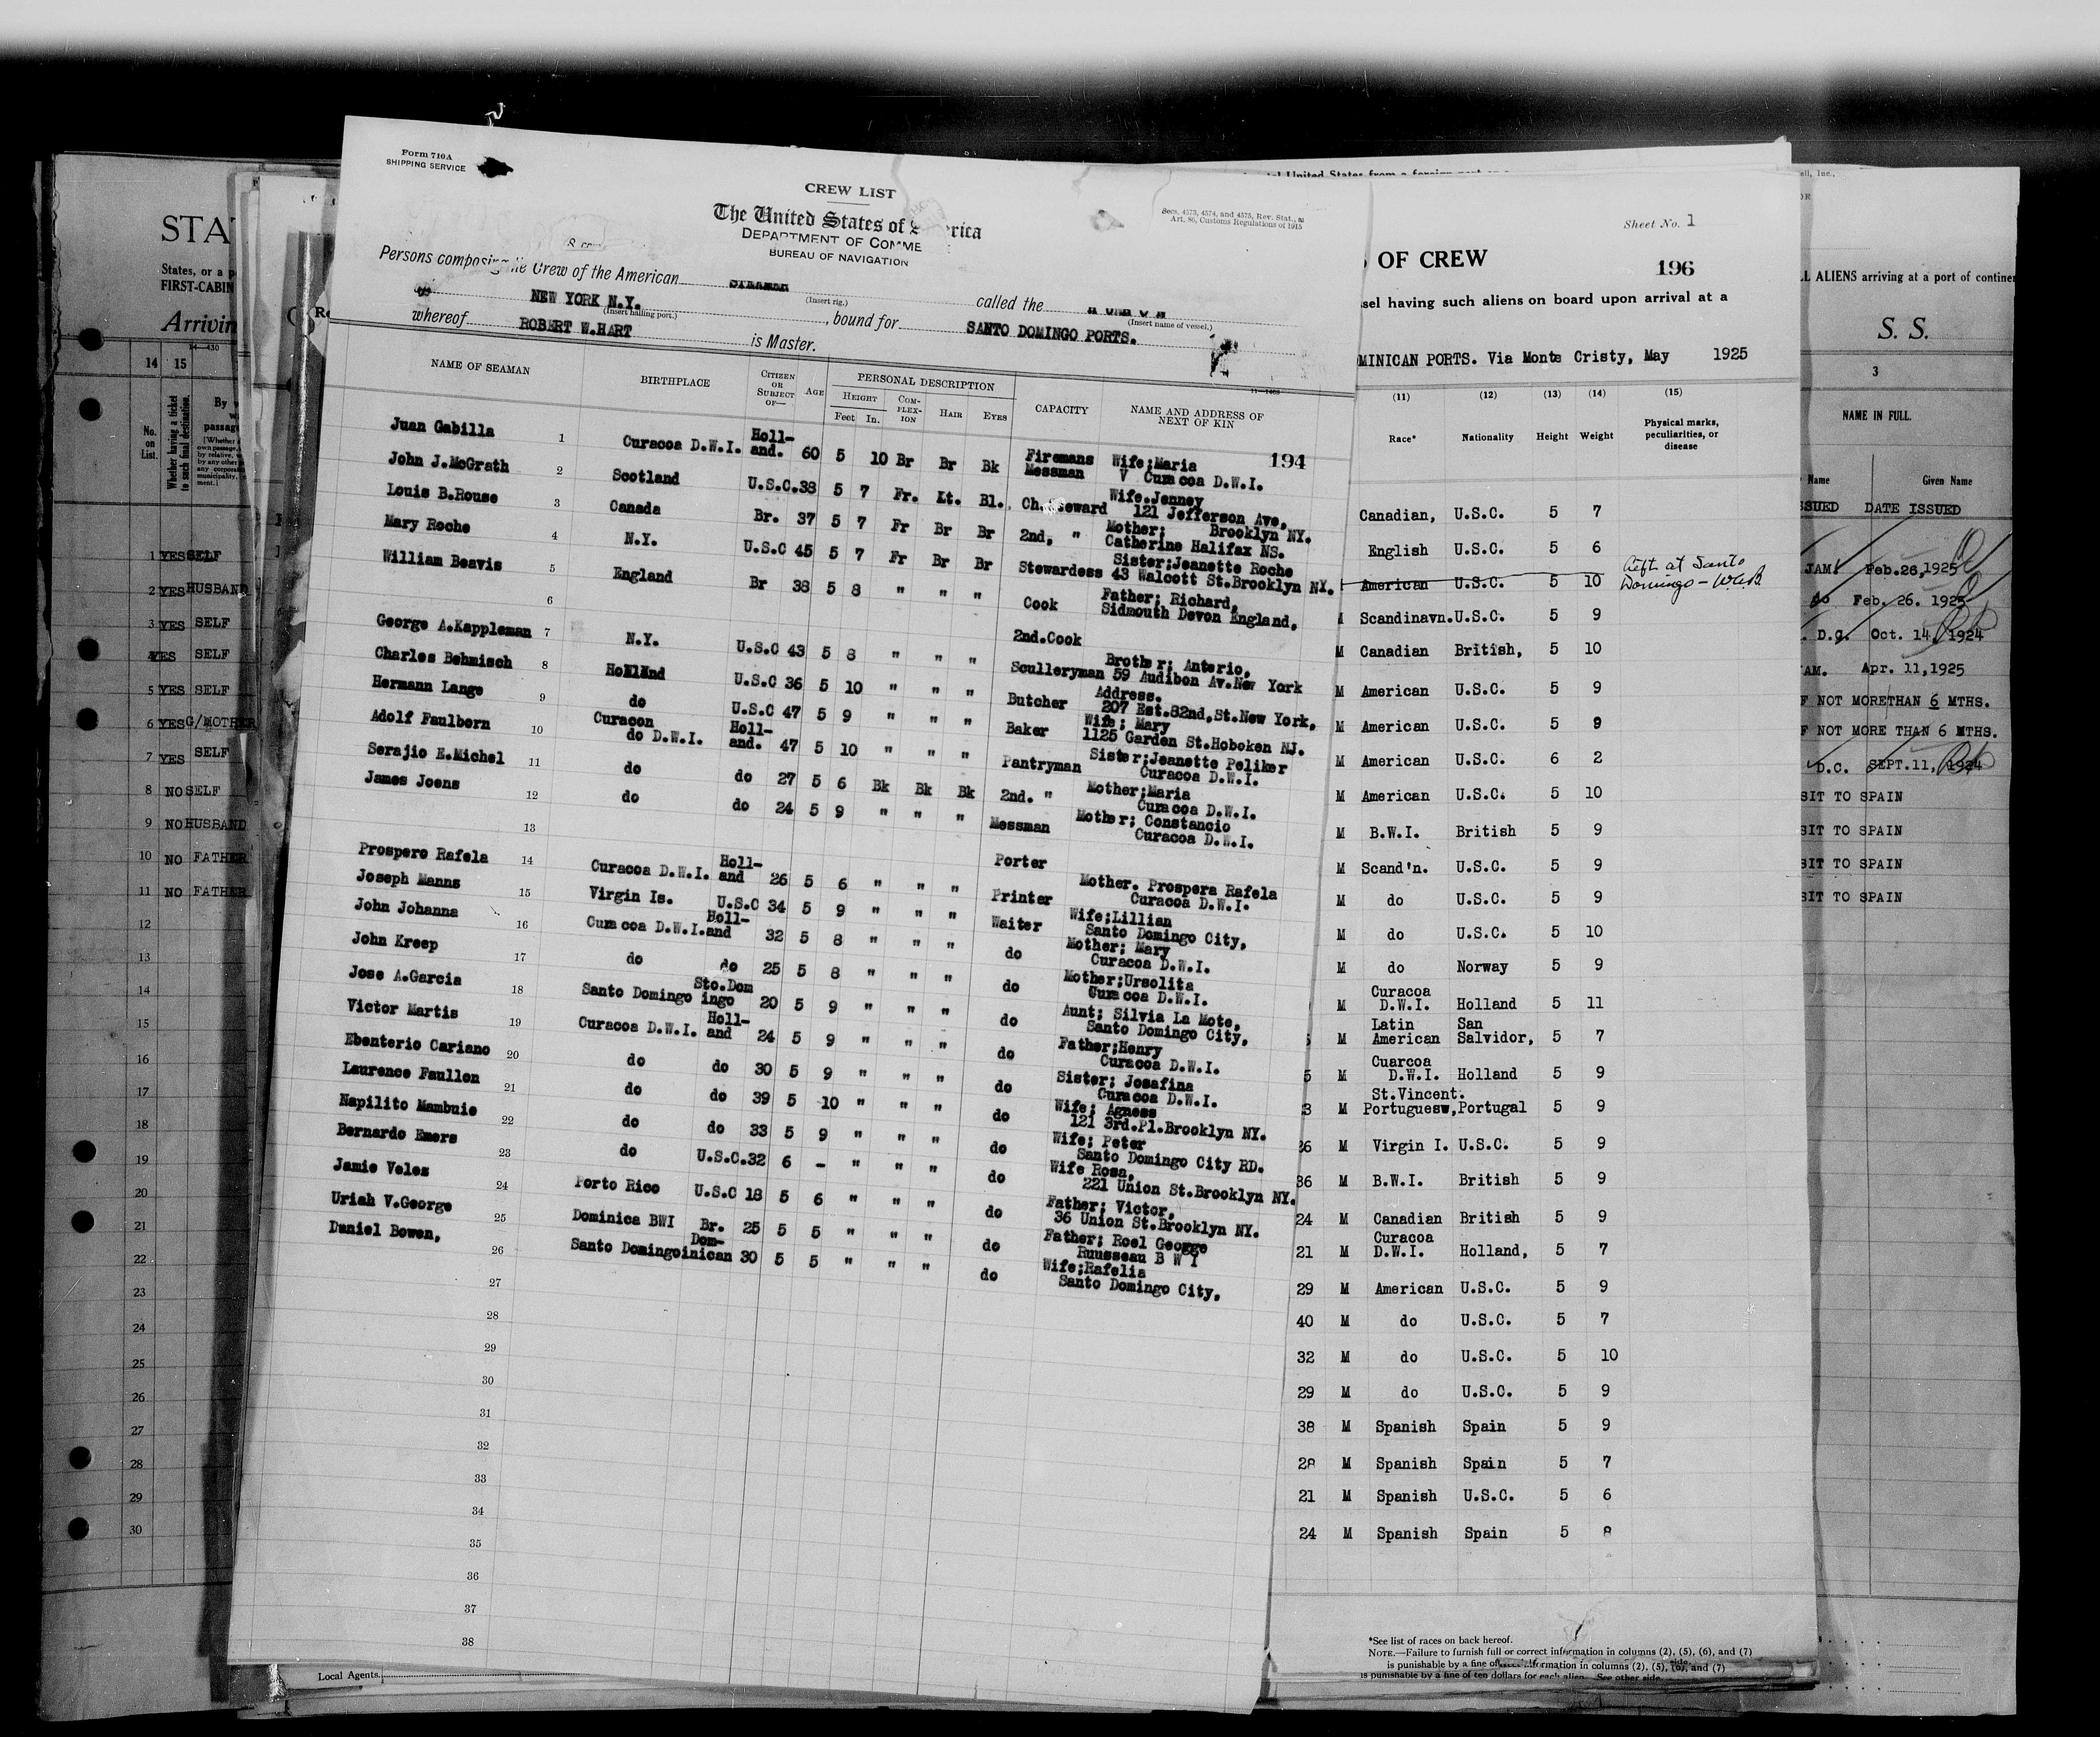 Form 710A
SHIPPING SERVICE
CREW LIST
The United States of
DEPARTMENT OF COMME
BUREAU OF NAVIGATION
Secs. 4573, 4574, and 4575, Rev. Stat., as
Art. 86, Customs Regulations of 1915
Persons composing Crew of the American called the
(Insert rig.) (Insert name of vessel.)
NEW YORK N.Y. , bound for SANTO DOMINGO PORTS.
(Insert hailing port.)
whereof ROBERT W.HART is Master.
NAME OF SEAMAN BIRTHPLACE CITIZEN OR SUBJECT OF— AGE PERSONAL DESCRIPTION CAPACITY NAME AND ADDRESS OF NEXT OF KIN
HEIGHT COM-PLEX-ION HAIR EYES
Feet In.
194
Juan Gabilla 1 Curacoa D.W.I. Holl-and. 60 5 10 Br Br Bk Firemans Messman Wife;Maria V Curacoa D.W.I.
John J.McGrath 2 Scotland U.S.C. 38 5 7 Fr. Lt. Bl. Wife.Jenney 121 Jefferson Ave, Brooklyn NY.
Louis B.Rouse 3 Canada Br. 37 5 7 Fr Br Br 2nd, " Mother; Catherine Halifax NS.
Mary Roche 4 N.Y. U.S.C 45 5 7 Fr Br Br Stewardess Sister;Jeanette Roche 43 Walcott St.Brooklyn NY.
William Beavis 5 England Br 38 5 8 " " " Cook Father; Richard, Sidmouth Devon England,
6 2nd.Cook
George A.Kappleman 7 N.Y. U.S.C 43 5 8 " " " Sculleryman Brother; Anterio, 59 Audibon Av.New York
Charles Behmisch 8 Holland U.S.C 36 5 10 " " " Butcher Address. 207 Est.82nd,St.New York,
Hermann Lange 9 do U.S.C 47 5 9 " " " Baker Wife; Mary 1125 Garden St.Hoboken NJ.
Adolf Faulborn 10 Curacon do D.W.I. Holl-and. 47 5 10 " " " Pantryman Sister;Jeanette Peliker Curacoa D.W.I.
Serajio E.Michel 11 do do 27 5 6 Bk Bk Bk 2nd. " Mother;Maria Curacoa D.W.I.
James Joens 12 do do 24 5 9 " " " Messman Mother; Constancio Curacoa D.W.I.
13 Porter
Prospero Rafela 14 Curacoa D.W.I. Holl-and 26 5 6 " " " Printer Mother. Prospera Rafela Curacoa D.W.I.
Joseph Manns 15 Virgin Is. U.S.C 34 5 9 " " " Waiter Wife;Lillian Santo Domingo City,
John Johanna 16 Curacoa D.W.I. Holl-and 32 5 8 " " " do Mother; Mary Curacoa D.W.I.
John Kreep 17 do do 25 5 8 " " " do Mother;Ursolita Curacoa D.W.I.
Jose A.Garcia 18 Santo Domingo Sto.Dom ingo 20 5 9 " " " do Aunt; Silvia La Mote, Santo Domingo City,
Victor Martis 19 Curacoa D.W.I. Holl-and 24 5 9 " " " do Father;Henry Curacoa D.W.I.
Ebenterio Cariano 20 do do 30 5 9 " " " do Sister; Josafina Curacoa D.W.I.
Laurence Faullon 21 do do 39 5 10 " " " do Wife; Agness 121 3rd.Pl.Brooklyn NY.
Napilito Mambuie 22 do do 33 5 9 " " " do Wife; Peter Santo Domingo City RD.
Bernardo Emers 23 do U.S.C. 32 6 - " " " do Wife Rosa, 221 Union St.Brooklyn NY.
Jamie Velez 24 Porto Rico U.S.C 18 5 6 " " " do Father; Victor, 36 Union St.Brooklyn NY.
Uriah V.George 25 Dominica BWI Br. 25 5 5 " " " do Father; Roel George Ruusseau B W I
Daniel Bowen, 26 Santo Domingo Dom-inican 30 5 5 " " " do Wife;Rafelia Santo Domingo City,
27
28
29
30
31
32
33
34
35
36
37
38
Local Agents.
Sheet No. 1
OF CREW
196
sel having such aliens on board upon arrival at a
MINICAN PORTS. Via Monte Cristy, May 1925
(11) (12) (13) (14) (15)
Race* Nationality Height Weight Physical marks, peculiarities, or disease
Canadian, U.S.C. 5 7
English U.S.C. 5 6
American U.S.C. 5 10 Left at Santo Domingo
Scandinavn. U.S.C. 5 9
M Canadian British, 5 10
M American U.S.C. 5 9
M American U.S.C. 5 9
M American U.S.C. 6 2
M American U.S.C. 5 10
M B.W.I. British 5 9
M Scand'n. U.S.C. 5 9
M do U.S.C. 5 9
M do U.S.C. 5 10
M do Norway 5 9
M Curacoa D.W.I. Holland 5 11
M Latin American San Salvidor, 5 7
5 M Cuarcoa D.W.I. Holland 5 9
3 M St.Vincent. Portuguesw, Portugal 5 9
26 M Virgin I. U.S.C. 5 9
36 M B.W.I. British 5 9
24 M Canadian British 5 9
21 M Curacoa D.W.I. Holland, 5 7
29 M American U.S.C. 5 9
40 M do U.S.C. 5 7
32 M do U.S.C. 5 10
29 M do U.S.C. 5 9
38 M Spanish Spain 5 9
28 M Spanish Spain 5 7
21 M Spanish U.S.C. 5 6
24 M Spanish Spain 5 8
*See list of races on back hereof.
NOTE.—Failure to furnish full or correct information in columns (2), (5), (6), and (7)
is punishable by a fine of formation in columns (2), (5), (6), and (7)
is punishable by a fine of ten dollars for each alien. See other side.
STA
States, or a p
FIRST-CABIN
Arrivin
14 15
No. on List. Whether having a ticket to such final destination. By w passag
1 YES SELF
2 YES HUSBAND
3 YES SELF
4 YES SELF
5 YES SELF
6 YES G/MOTHER
7 YES SELF
8 NO SELF
9 NO HUSBAND
10 NO FATHER
11 NO FATHER
12
13
14
15
16
17
18
19
20
21
22
23
24
25
26
27
28
29
30
L ALIENS arriving at a port of continen
S. S.
3
NAME IN FULL.
Name Given Name
SSUED DATE ISSUED
JAM. Feb.26,1925
do Feb. 26. 1925
D.C. Oct. 14, 1924
AM. Apr. 11,1925
F NOT MORETHAN 6 MTHS.
F NOT MORE THAN 6 MTHS.
D.C. SEPT.11, 1924
SIT TO SPAIN
SIT TO SPAIN
SIT TO SPAIN
SIT TO SPAIN